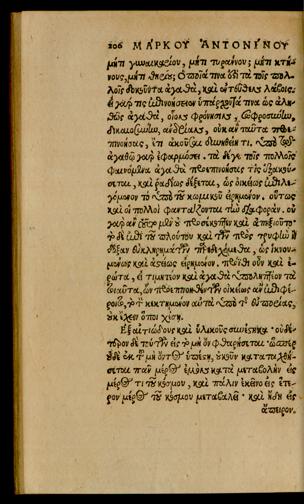 206 ΜΑΡΚΟΥ ΑΝΤΩΝΙΝΟΥ
μήτι γυναικαρίου, μήτι τυράννου; μήτι κτή-
νους, μήτι θηρίου; Ὁποῖά τινα ἐστὶ τὰ τοῖς πολ-
λοῖς δοκοῦντα ἀγαθὰ, καὶ οὕτως λάβοις.
εἰ γάρ τις ἐπινοήσειεν ὑπάρχοντά τινα ὡς ἀλη-
θῶς ἀγαθὰ, οἷον φρόνησιν, σωφροσύνην,
δικαιοσύνην, ἀνδρείαν, οὐκ ἂν ταῦτα προε-
πινοήσας, ἔτι ἀκοῦσαι δυνηθείη τι. ὑπὸ
ἀγαθῷ γὰρ ἐφαρμόσει. τὰ δέ γε τοῖς πολλοῖς
φαινόμενα ἀγαθὰ προεπινοήσας τις ἐξακού-
σεται, καὶ ῥαδίως δέξεται, ὡς οἰκείως ἐπιλε-
γόμενον τὸ ὑπὸ τοῦ κωμικοῦ εἰρημένον. οὕτως
καὶ οἱ πολλοὶ φαντάζονται τὴν διαφοράν. οὐ
γὰρ ἂν τοῦτο μὲν οὐ προσέκοπτεν καὶ ἀπηξιοῦτο
τὸ δὲ ἐπὶ τοῦ πλούτου καὶ τῶν πρὸς τρυφὴν ἢ
δόξαν εὐκληρημάτων παρεδεχόμεθα, ὡς ἱκνου-
μένως καὶ ἀστείως εἰρημένον. πρόϊθι οὖν καὶ ἐ-
ρώτα, εἰ τιμητέον καὶ ἀγαθὰ ὑποληπτέον τὰ
τοιαῦτα, ὧν προεπινοηθέντων οἰκείως ἂν ἐπιφέ-
ροιτο, τὸ τὸν κεκτημένον αὐτὰ ὑπὸ τῆς εὐπορίας,
οὐκ ἔχειν ὅποι χέσῃ.
Ἐξ αἰτιώδους καὶ ὑλικοῦ συνέστηκα· οὐδέ-
τερον δὲ τούτων εἰς τὸ μὴ ὂν φθαρήσεται· ὥσπερ
οὐδὲ ἐκ τοῦ μὴ ὄντος ὑπέστη. οὐκοῦν καταταχθή-
σεται πᾶν μέρος ἐμὸν κατὰ μεταβολὴν εἰς
μέρος τι τοῦ κόσμου, καὶ πάλιν ἐκεῖνο εἰς ἕτε-
ρον μέρος τοῦ κόσμου μεταβαλεῖ· καὶ ἤδη εἰς
ἄπειρον.